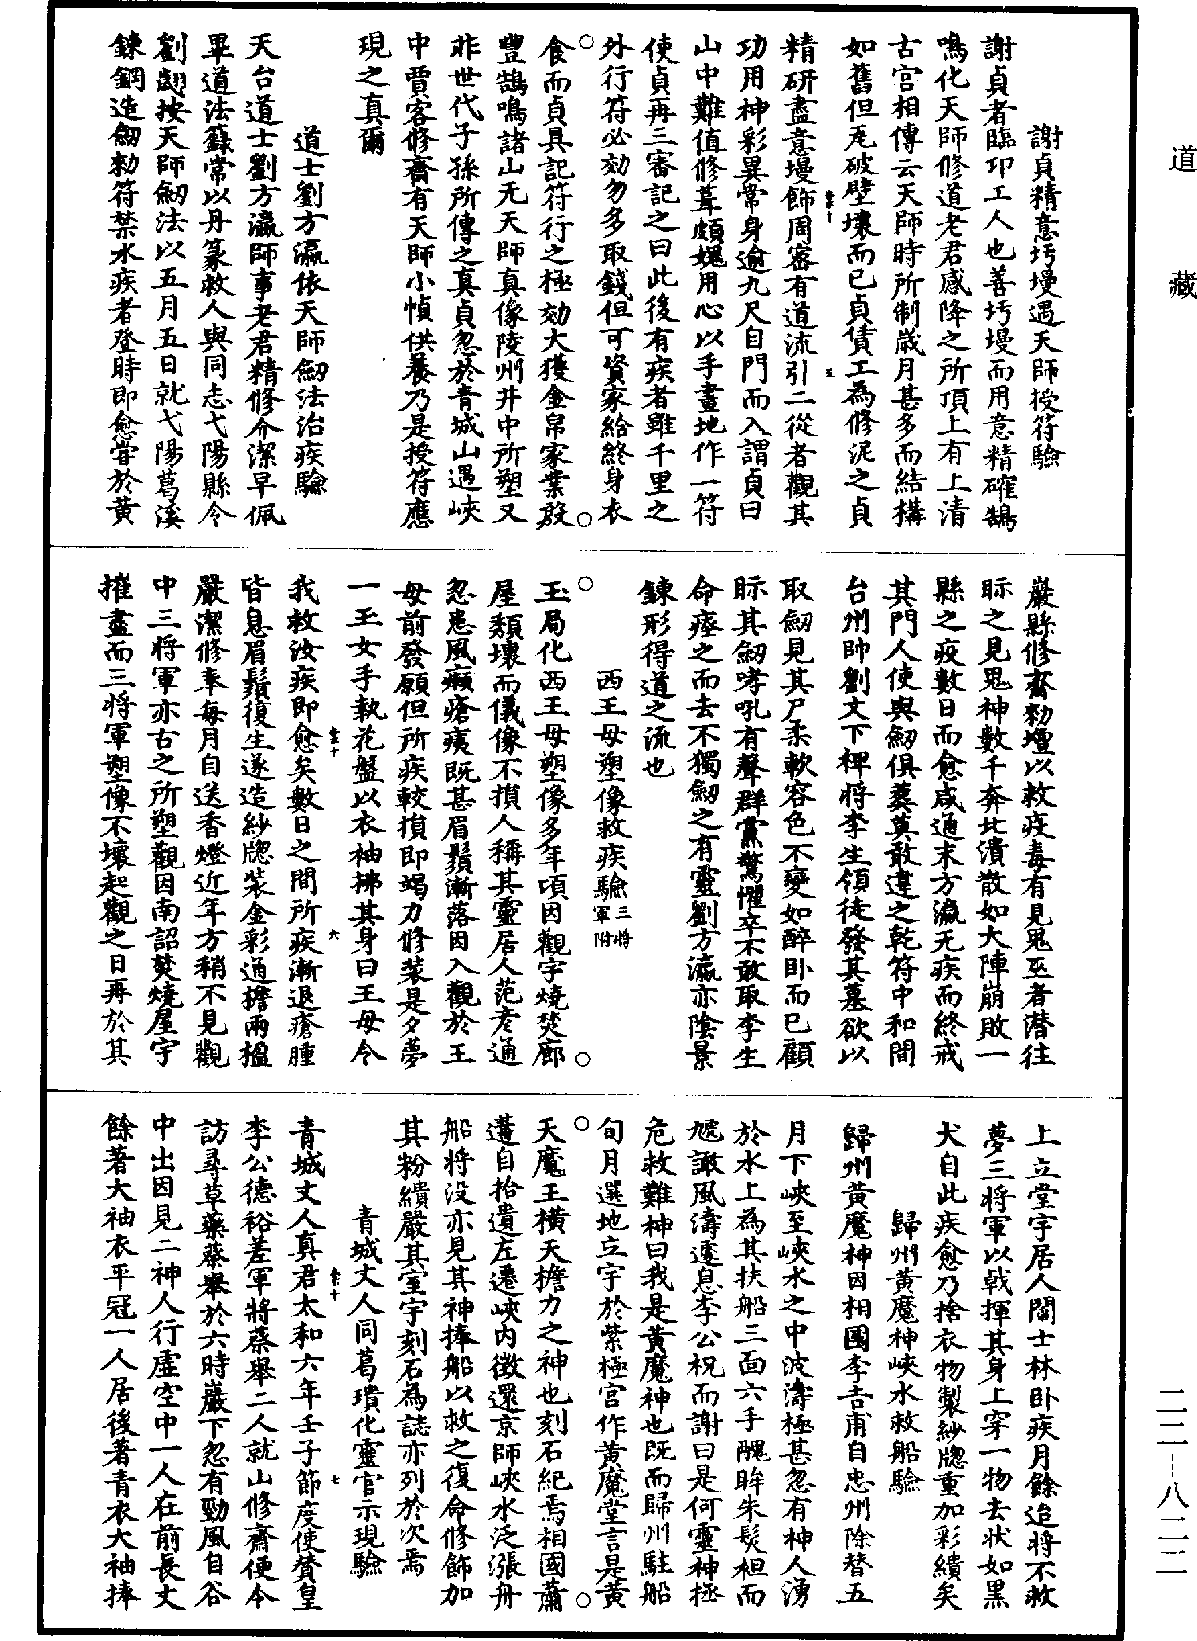 道藏
謝貞精意圬墁遇天師授符驗
謝貞者臨邛工人也善圬墁而用意精確鵠
鳴化天師修道老君感降之所頂上有上清
古宮相傳云天師時所制歲月甚多而結構
如舊但瓦破壁壞而已貞賃工為修泥之貞
精研盡意墁飾周密有道流引二從者觀其
功用神彩異常身逾九尺自門而入謂貞曰
山中難值修葺頗媿用心以手畫地作一符
使貞再三審記之曰此後有疾者雖千里之
外行符必効勿多取錢但可資家給終身衣
食而貞具記符行之極効大獲金帛家業殷
豐鵠鳴諸山无天師真像陵州井中所塑又
非世代子孫所傳之真貞忽於青城山遇峽
中賈客修齋有天師小幀供養乃是授符應
現之真爾
道士劉方瀛依天師劒法治疾驗
天台道士劉方瀛師事老君精修介潔早佩
畢道法籙常以丹篆救人與同志弋陽縣令
劉翽按天師劒法以五月五日就弋陽葛溪
鍊鋼造劒勑符禁水疾者登時即愈嘗於黃
巖縣修齋勑壇以救疫毒有見鬼巫者潛往
眎之見鬼神數千奔北潰散如大陣崩敗一
縣之疫數日而愈咸通末方瀛无疾而終戒
其門人使與劒俱葬莫敢違之乾符中和間
台州帥劉文下裨將李生領徒發其墓欲以
取劒見其尸柔軟容色不變如醉臥而已顧
眎其劒哮吼有聲群黨驚懼卒不敢取李生
命瘞之而去不獨劒之有靈劉方瀛亦陰景
鍊形得道之流也
西王母塑像救疾驗三將軍附
玉局化西王母塑像多年頃因觀宇燒焚廊
屋頹壞而儀像不損人稱其靈居人范彥通
忽患風癩瘡痍既甚眉鬚漸落因入觀於王
母前發願但所疾較損即竭力修裝是夕夢
一玉女手執花盤以衣袖拂其身曰王母令
我救汝疾即愈矣數日之間所疾漸退瘡腫
皆息眉鬚復生遂造紗牎裝金彩通檐兩楹
嚴潔修奉每月自送香燈近年方稍不見觀
中三將軍亦古之所塑觀因南詔焚燒屋宇
摧盡而三將軍塑像不壞起觀之日再於其
上立堂宇居人閻士林臥疾月餘迨將不救
夢三將軍以戟揮其身上穿一物去狀如黑
犬自此疾愈乃捨衣物製紗牎重加彩繢矣
歸州黃魔神峽水救船驗
歸州黃魔神因相國李吉甫自忠州除替五
月下峽至峽水之中波濤極甚忽有神人湧
於水上為其扶船三面六手醜眸朱髮袒而
虓譀風濤遽息李公祝而謝曰是何靈神拯
危救難神曰我是黃魔神也既而歸州駐船
旬月選地立宇於紫極宮作黃魔堂言是黃
天魔王橫天擔力之神也刻石紀焉相國蕭
遘自拾遺左遷峽內徵還京師峽水泛漲舟
船將沒亦見其神捧船以救之復命修飾加
其粉繢嚴其室宇刻石為誌亦列於次焉
青城丈人同葛璝化靈官示現驗
青城丈人真君太和六年壬子節度使贊皇
李公德裕差軍將蔡舉二人就山修齋便令
訪尋草藥蔡舉於六時巖下忽有勁風自谷
中出因見二神人行虛空中一人在前長丈
餘著大袖衣平冠一人居後著青衣大袖捧
二二―八二二